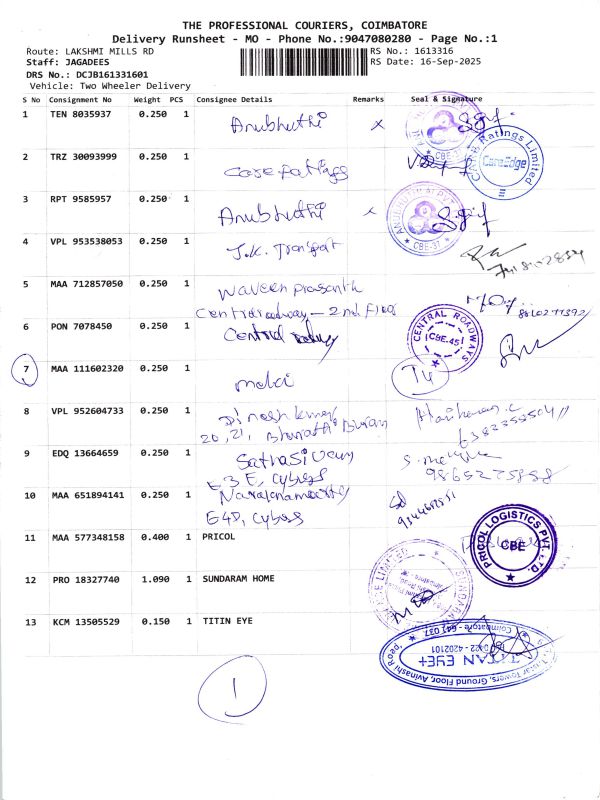 THE PROFESSIONAL COURIERS, COIMBATORE
Delivery Runsheet - MO - Phone No.:9047080280 - Page No.:1
Route: LAKSHMI MILLS RD
RS No.: 1613316
Staff: JAGADEES
RS Date: 16-Sep-2025
DRS No.: DCJB161331601
Vehicle: Two Wheeler Delivery
S No Consignment No Weight PCS Consignee Details Remarks Seal & Signature
1 TEN 8035937 0.250 1 Anubhuthi x
CBE-37
2 TRZ 30093999 0.250 1 Care Ratings
CARE Ratings Limited
CareEdge
3 RPT 9585957 0.250 1 Anubhuthi x
CBE-37
4 VPL 953538053 0.250 1 J.K. Transport
5 MAA 712857050 0.250 1 Naveen prasanth
Central roadway - 2nd Floor
6 PON 7078450 0.250 1 Central
CENTRAL ROADWAYS
CBE-45
7 MAA 111602320 0.250 1
8 VPL 952604733 0.250 1 Dinesh kumar
20, 21, Bharathi
9 EDQ 13664659 0.250 1
E3E, Cybers
9865275858
10 MAA 651894141 0.250 1
E4D, Cybers
11 MAA 577348158 0.400 1 PRICOL
PRICOL LOGISTICS PVT. LTD.
CBE
12 PRO 18327740 1.090 1 SUNDARAM HOME
13 KCM 13505529 0.150 1 TITIN EYE
Coimbatore - 641 037.
0422 - 4202101
TITAN EYE+
Towers, Ground Floor, Avinashi Road,
1